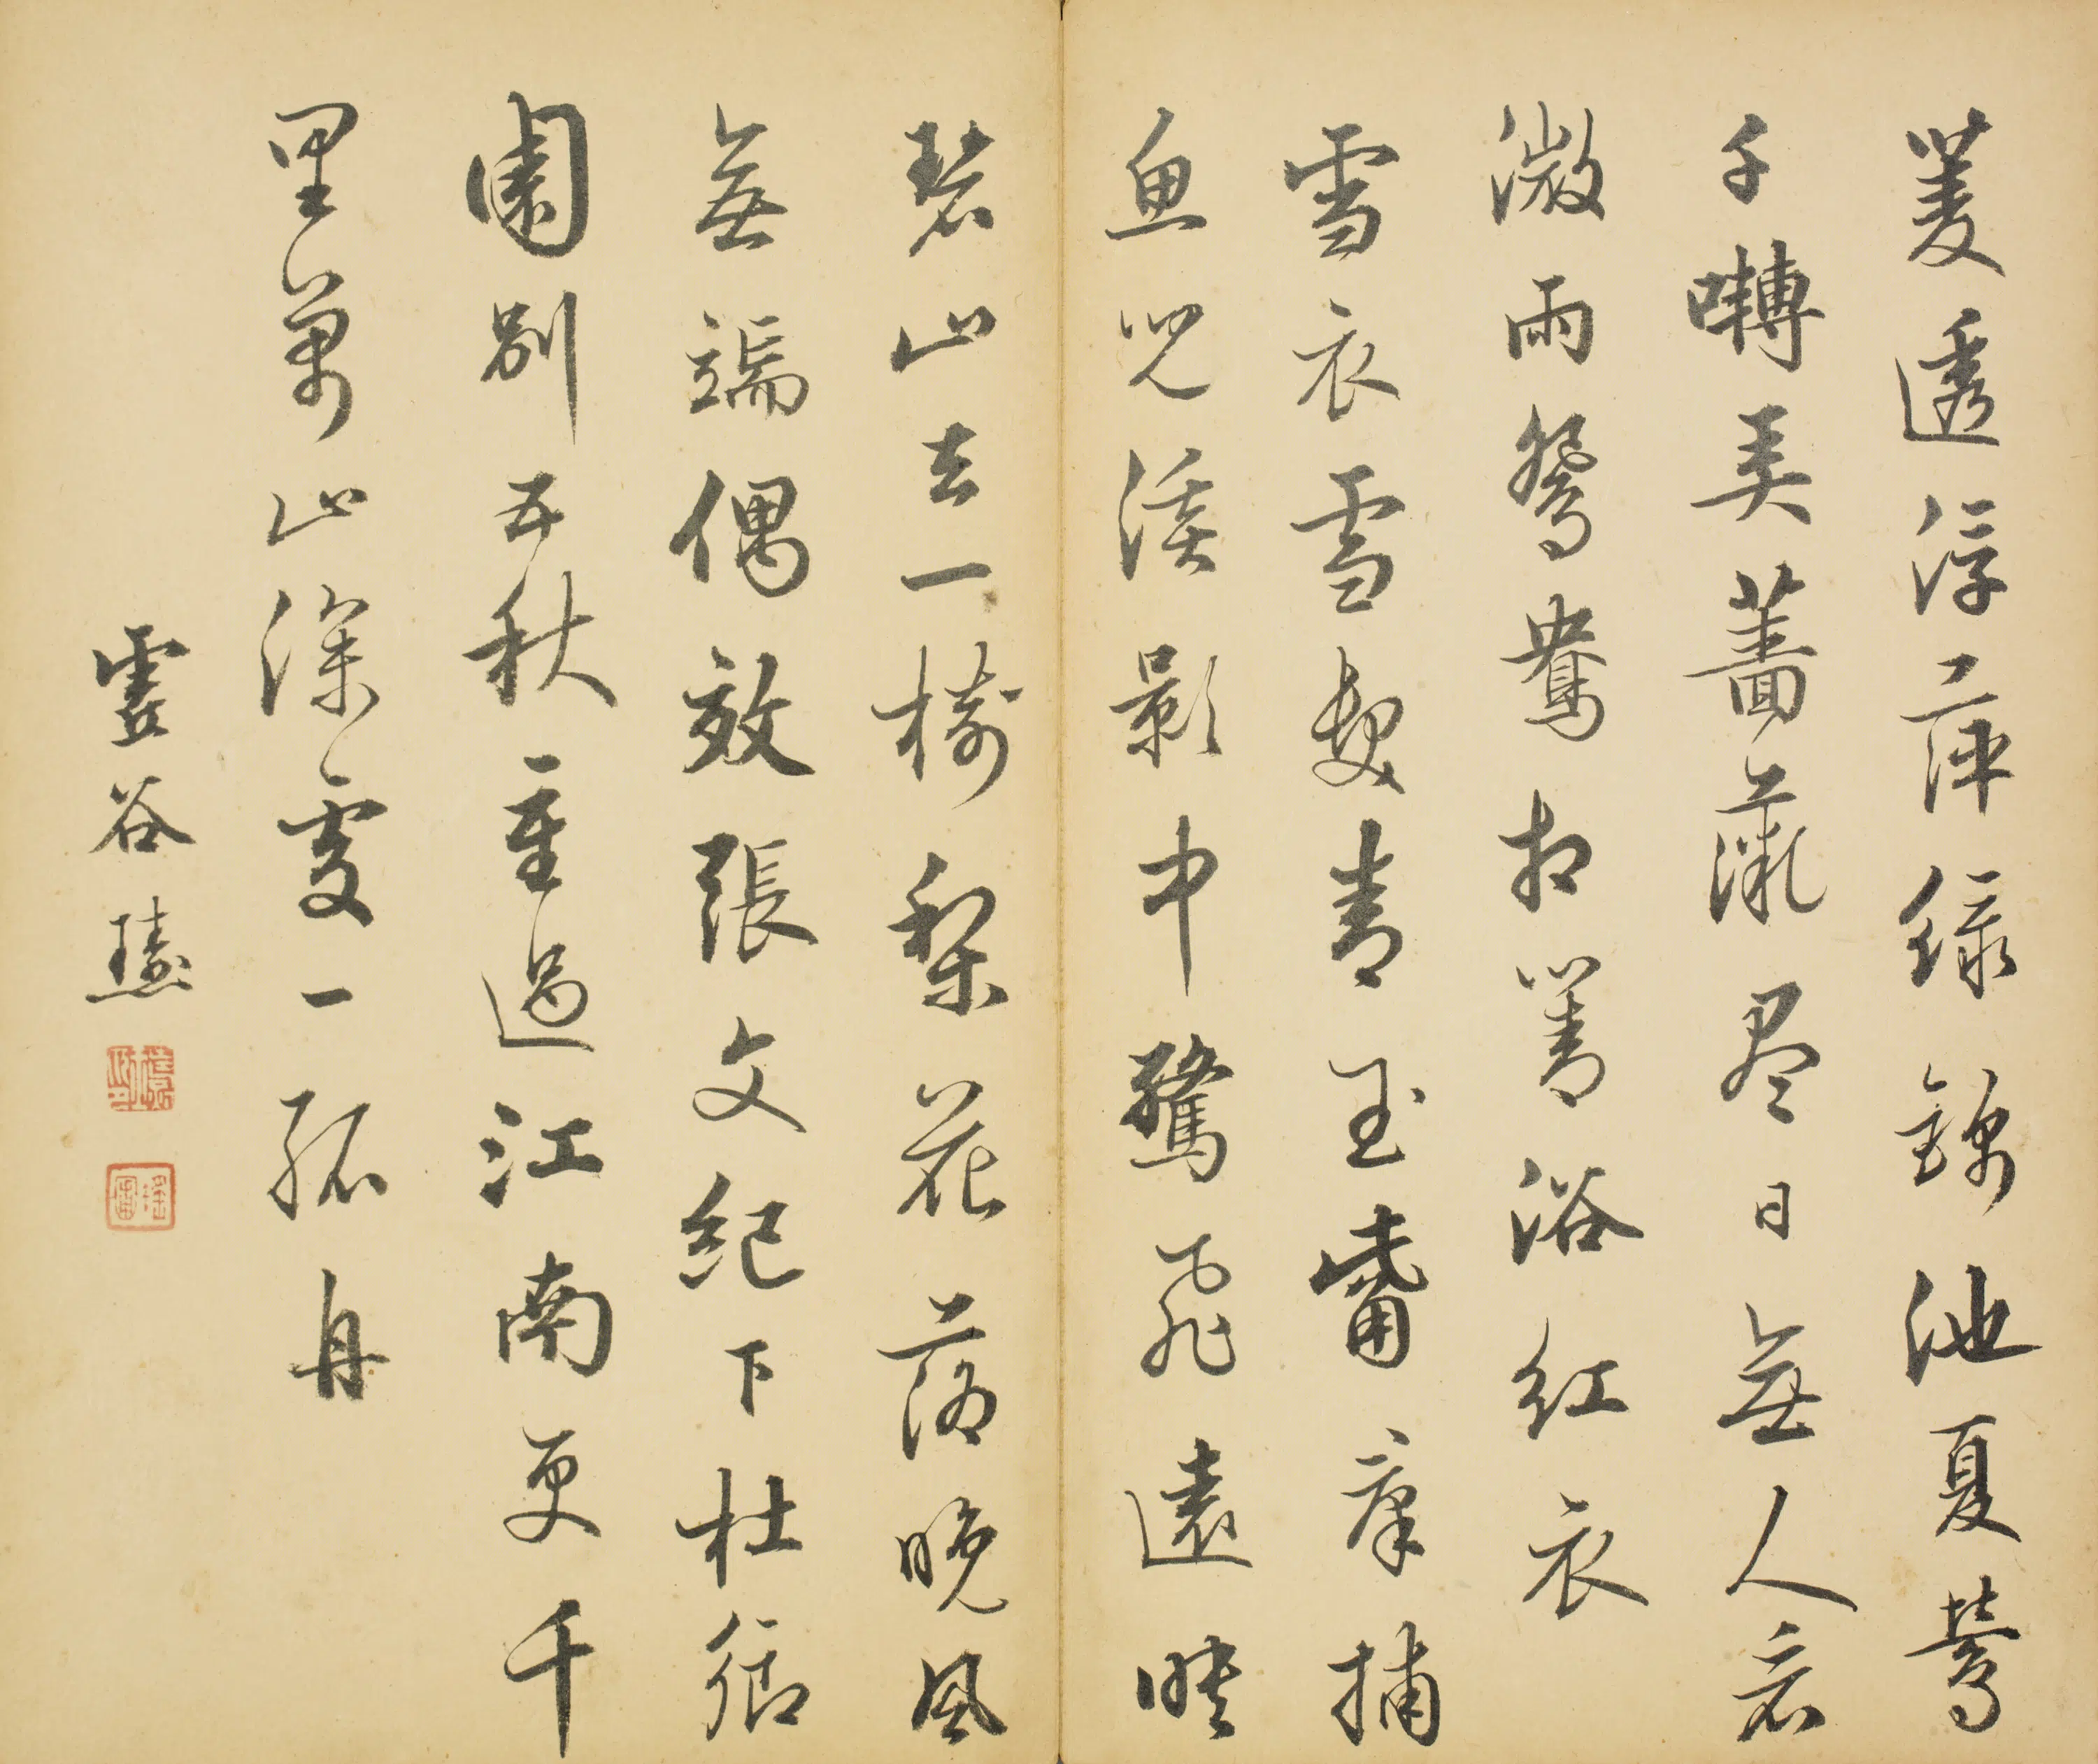 菱透浮萍綠錦池夏鶯
千囀弄薔薇盡日無人看
微雨鴛鴦相對浴紅衣
雪衣雪髮青玉觜羣捕
魚兒溪影中驚飛遠映
碧山去一樹梨花落晚風
無端偶效張文紀下杜鄉
園別五秋重過江南更千
里萬山深處一孤舟
雲谷